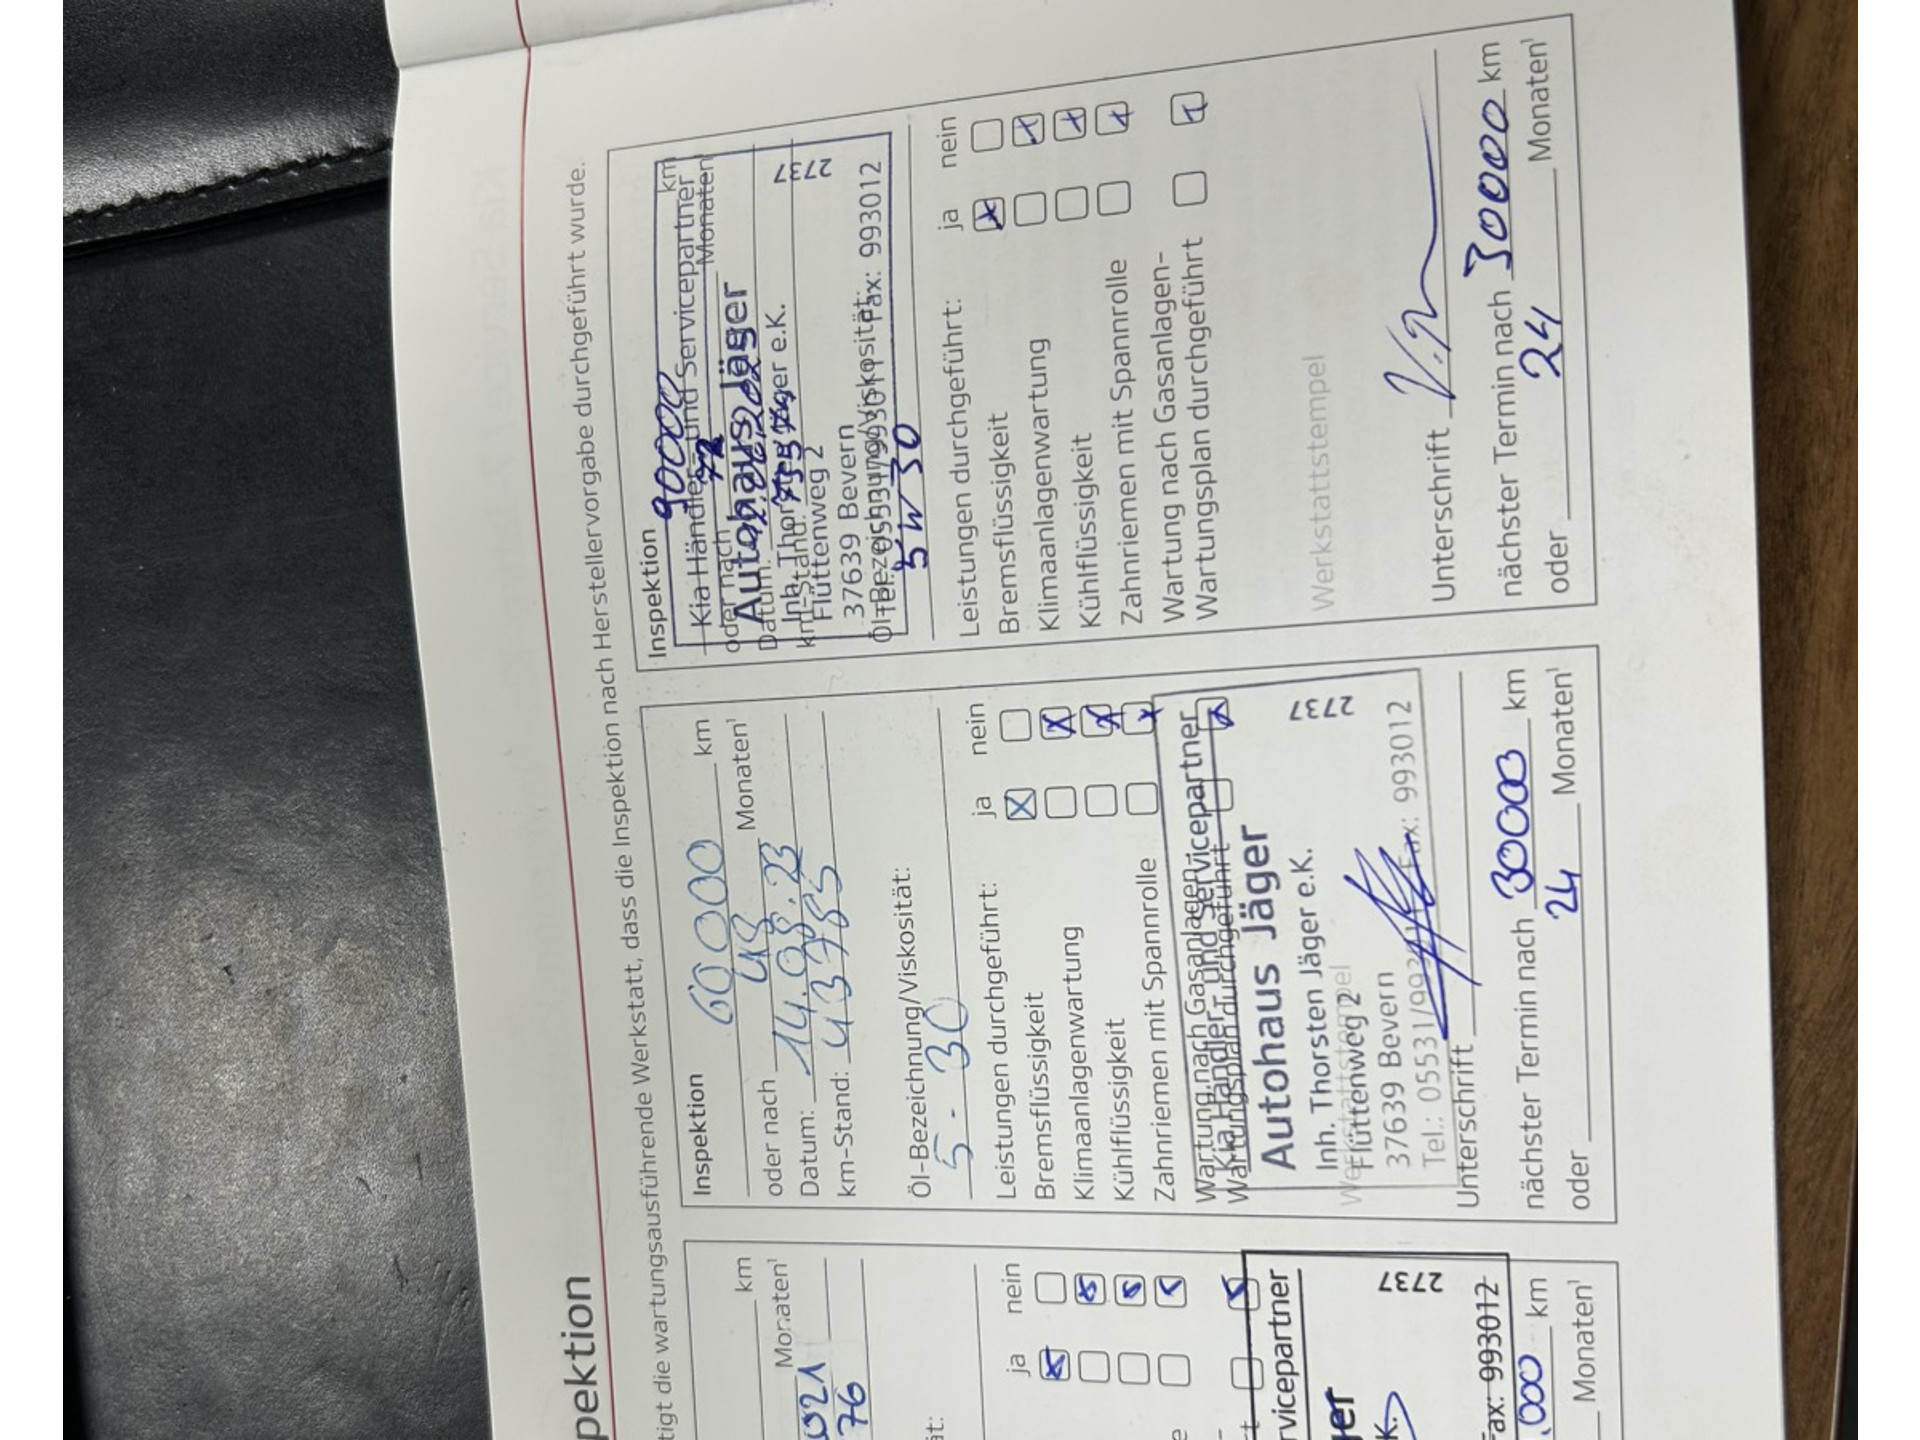 pektion
tigt die wartungsausführende Werkstatt, dass die Inspektion nach Herstellervorgabe durchgeführt wurde.
km
Monaten¹
021
76
ät:
ja nein
vicepartner
2737
jer
K.
Fax: 993012
000 km
Monaten¹
Inspektion
60000 km
oder nach 48 Monaten¹
Datum: 14.08.23
km-Stand: 43785
Öl-Bezeichnung/Viskosität:
5-30
Leistungen durchgeführt: ja nein
Bremsflüssigkeit
Klimaanlagenwartung
Kühlflüssigkeit
Zahnriemen mit Spannrolle
Wartung nach Gasanlagen-
Wartungsplan durchgeführt
Kia Händler- und Servicepartner
Autohaus Jäger
2737
Inh. Thorsten Jäger e.K.
Werkstattstempel
Flüttenweg 2
37639 Bevern
Tel.: 05531/99301 Fax: 993012
Unterschrift
nächster Termin nach 30000 km
oder 24 Monaten¹
Inspektion
90000 km
Kia Händler- und Servicepartner
oder nach 72 Monaten¹
Autohaus Jäger
Datum:
Inh. Thorsten Jäger e.K.
2737
km-Stand:
Flüttenweg 2
37639 Bevern
Tel.: 05531/99301 Fax: 993012
Öl-Bezeichnung/Viskosität:
5W30
Leistungen durchgeführt: ja nein
Bremsflüssigkeit
Klimaanlagenwartung
Kühlflüssigkeit
Zahnriemen mit Spannrolle
Wartung nach Gasanlagen-
Wartungsplan durchgeführt
Werkstattstempel
Unterschrift
nächster Termin nach 30000 km
oder 24 Monaten¹